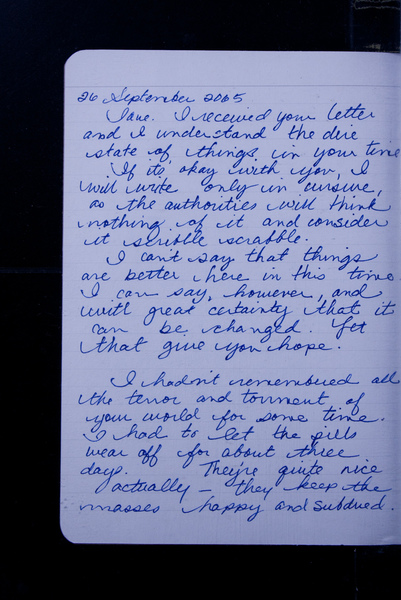 26 September 2065
Jane. I received your letter
and I understand the dire
state of things in your time
If its okay with you, I
will write only in cursive,
as the authorities will think
nothing of it and consider
it scribble scrabble.
I can't say that things
are better here in this time.
I can say, however, and
with great certainty that it
can be changed. Let
that give you hope.
I hadn't remembered all
the terror and torment of
your world for some time.
I had to let the pills
wear off for about three
days. They're quite nice
actually – they keep the
masses happy and subdued.